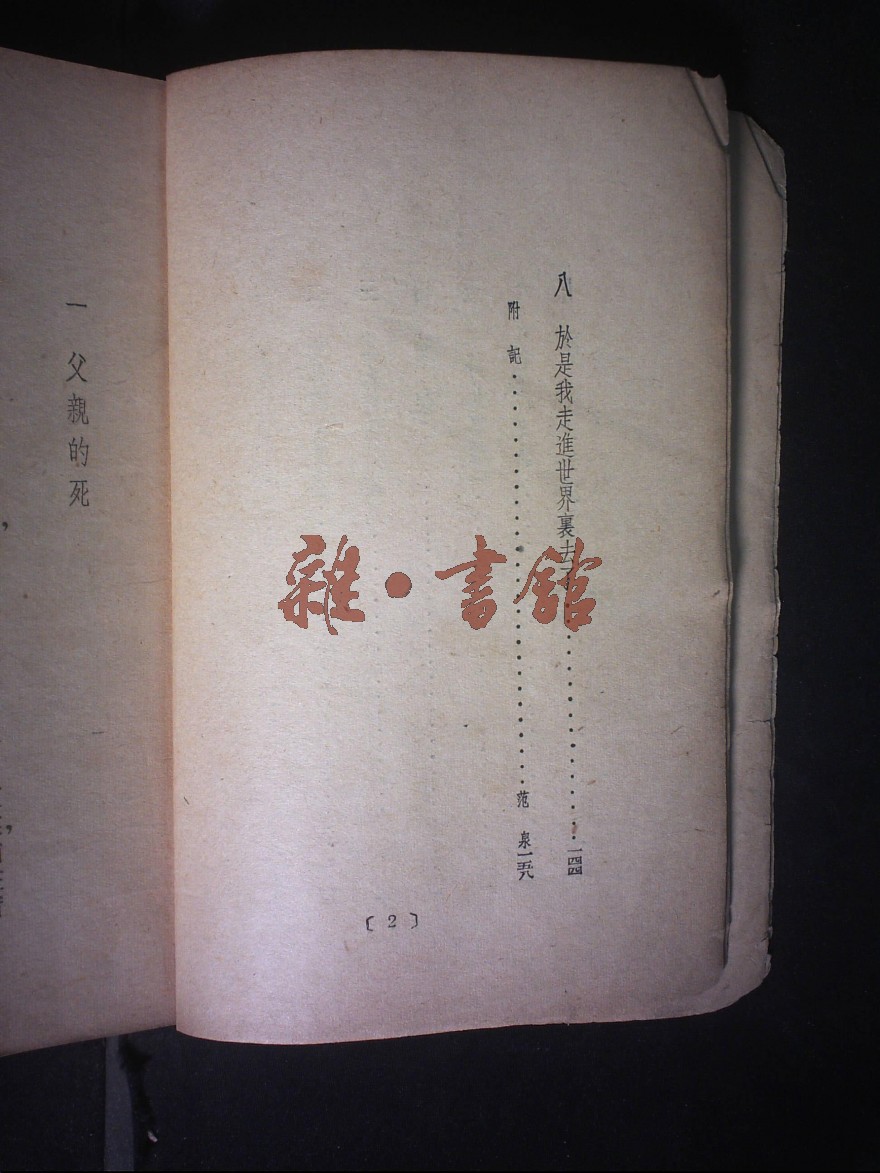 八　於是我走進世界裏去了····················一四四
附　記····················范　泉一五八
〔2〕
一　父親的死
雜·書館